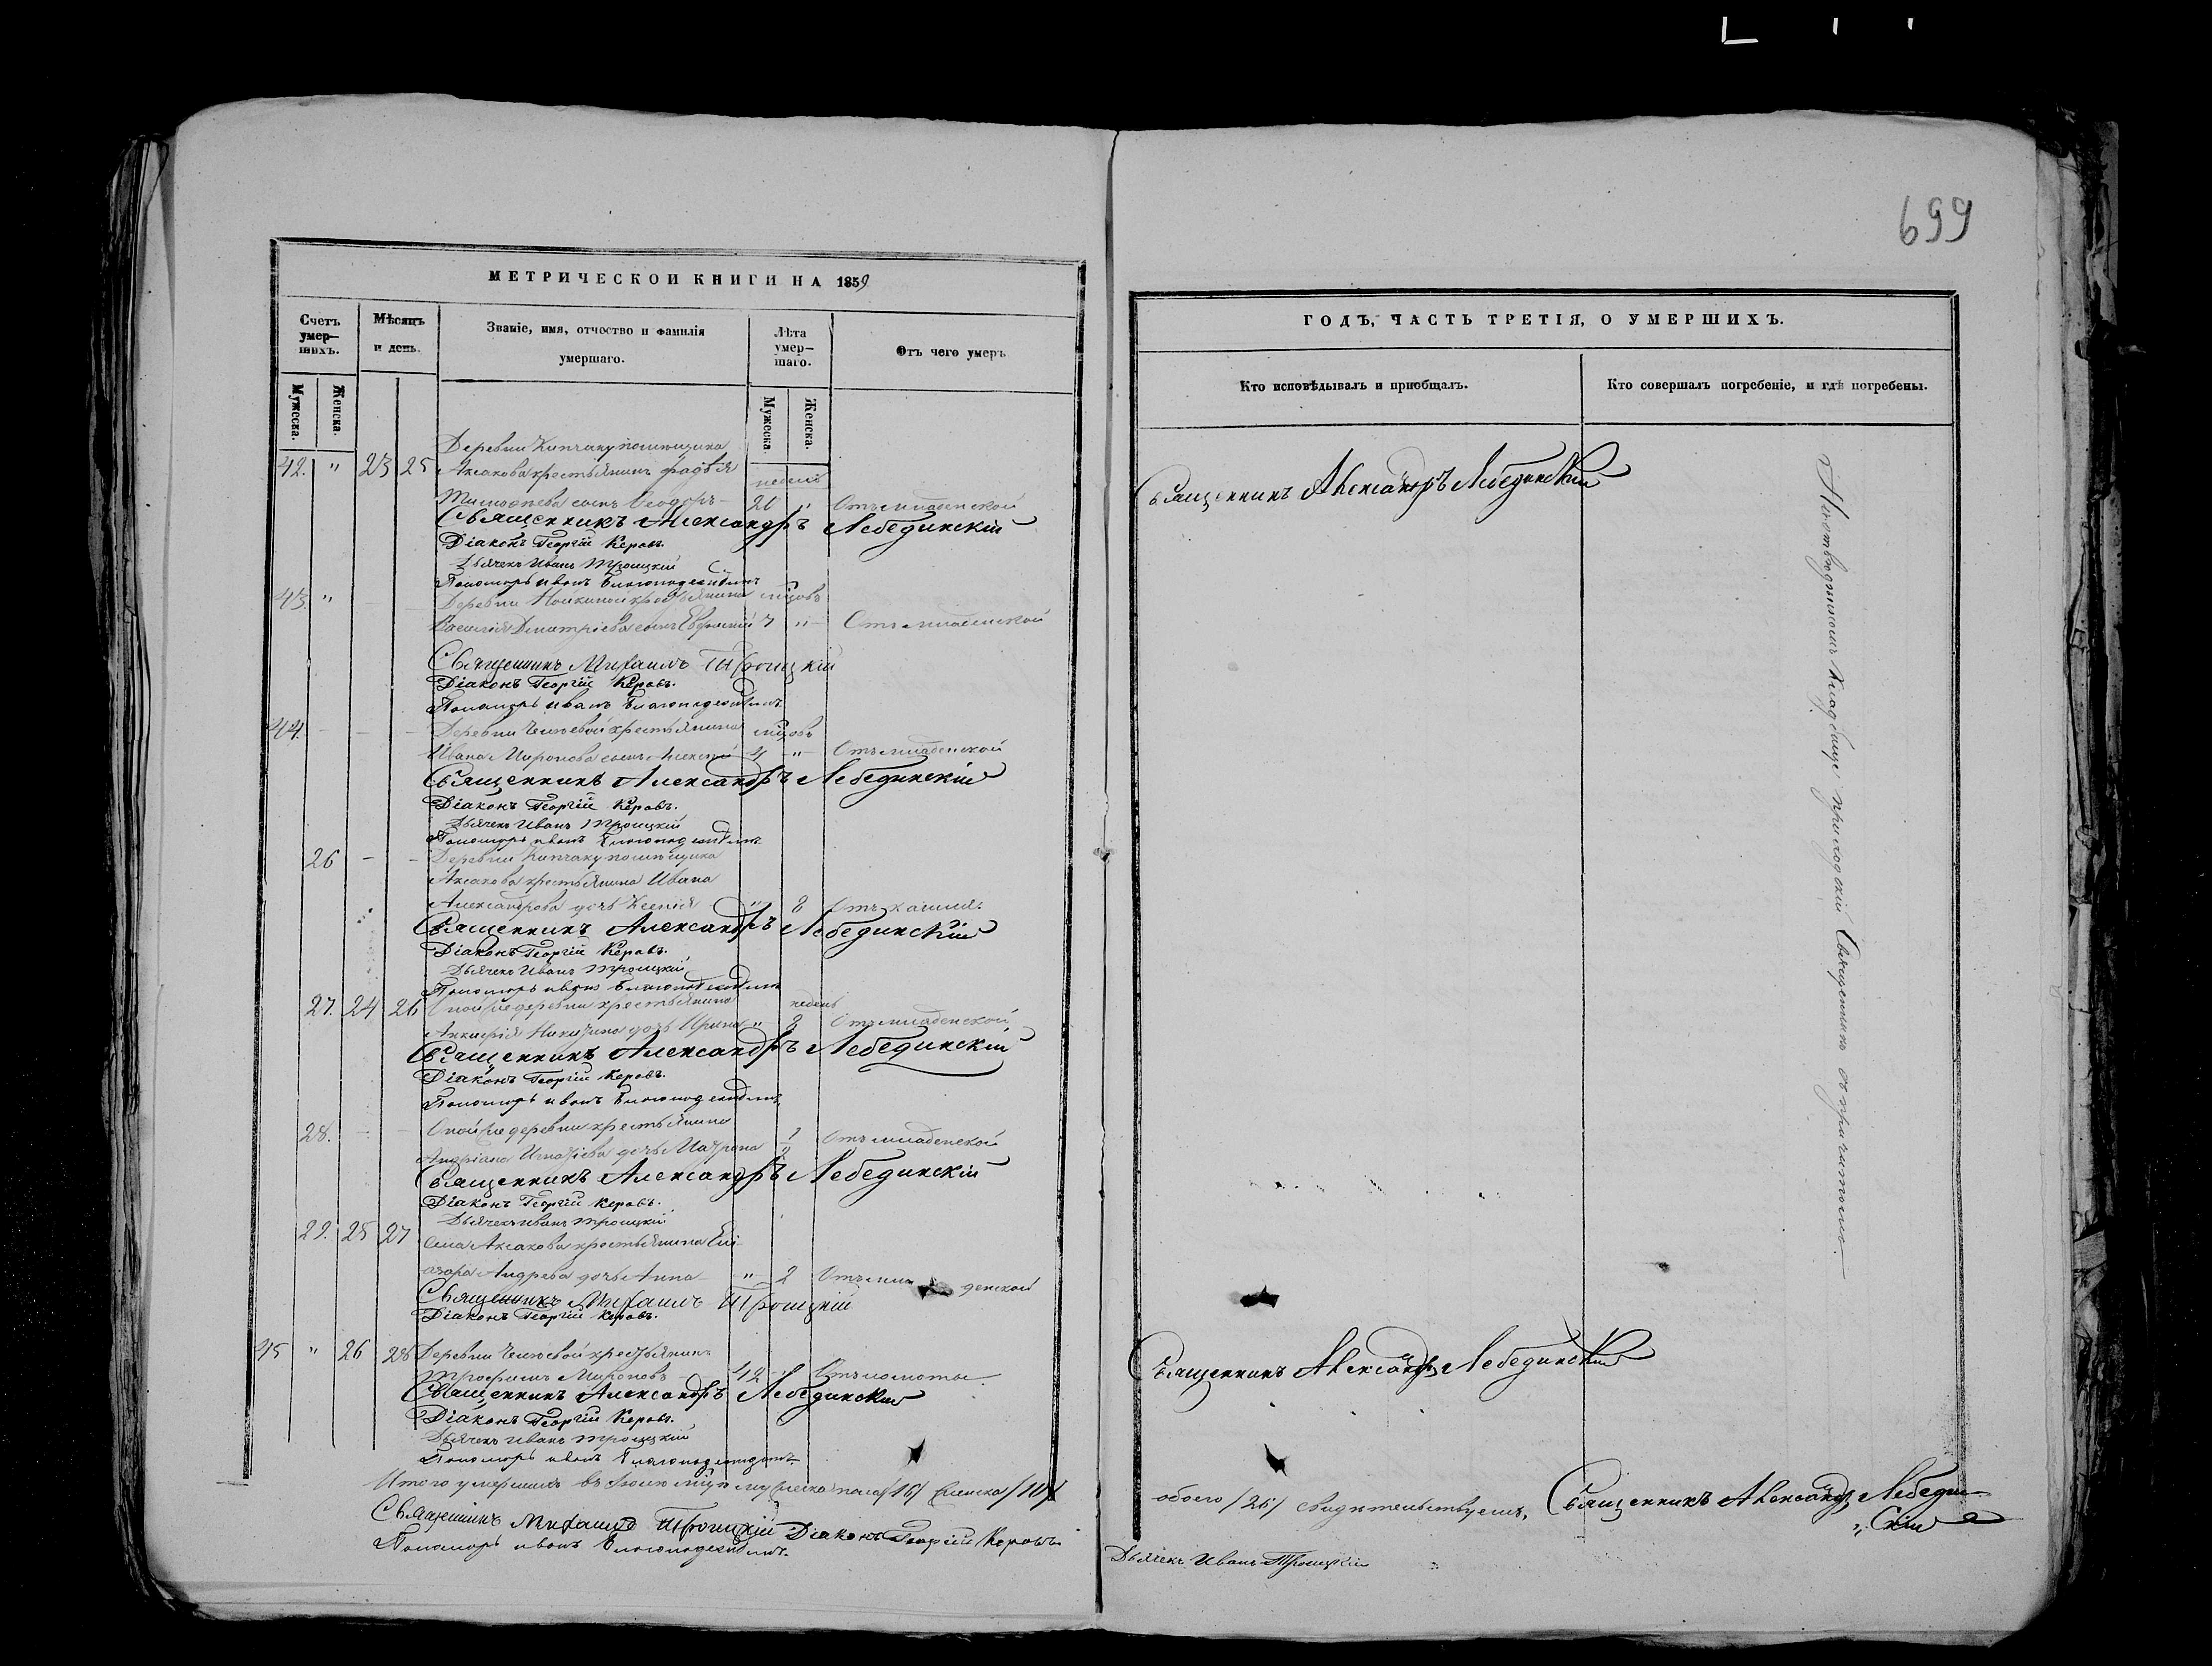 699
МЕТРИЧЕСКОЙ КНИГИ НА 1859
Счетъ умер-
шихъ.
Мѣсяцъ
и день.
Званіе, имя, отчество и фамилія
умершаго.
Лѣта
умер-
шаго.
Отъ чего умеръ
Мужеска.
Женска.
Мужеска.
Женска.
Деревни Кипчаку помѣщика
42. " 23 25 Аксакова крестьянина Фадѣя
недель
Тимофеева сынъ Ѳеодоръ 20 " Отъ младенской
Священникъ Александръ Лебединскій
Діаконъ Георгій Керовъ.
Дьячекъ Иванъ Троицкій
Пономарь Иванъ
43. " Деревни крестьянина мцовъ
Василія Димитріева сынъ 7 " Отъ младенской
Священникъ Михаилъ Троицкій
Діаконъ Георгій Керовъ.
Пономарь Иванъ
44. Деревни крестьянина мцовъ
Ивана Миронова сынъ Алексѣй 4 " Отъ младенской
Священникъ Александръ Лебединскій
Діаконъ Георгій Керовъ.
Дьячекъ Иванъ Троицкій
Пономарь Иванъ
26 Деревни Кипчаку помѣщика
Аксакова крестьянина Ивана
Александрова дочь Ксенія " 8 Отъ кашля
Священникъ Александръ Лебединскій
Діаконъ Георгій Керовъ.
Дьячекъ Иванъ Троицкій
Пономарь Иванъ
27. 24 26 деревни крестьянина недель
Никитина дочь Ирина " 3 Отъ младенской
Священникъ Александръ Лебединскій
Діаконъ Георгій Керовъ.
Пономарь Иванъ
28. деревни крестьянина
Андріана Игнатіева дочь Матрона 1/2 Отъ младенской
Священникъ Александръ Лебединскій
Діаконъ Георгій Керовъ.
Дьячекъ Иванъ Троицкій
29. 25 27 села Аксакова крестьянина Елі-
азара Андреева дочь Анна " 2 Отъ мла денской
Священникъ Михаилъ Троицкій
Діаконъ Георгій Керовъ.
45 " 26 28 Деревни крестьянинъ
Трофимъ Мироновъ 42 "
Священникъ Александръ Лебединскій
Діаконъ Георгій Керовъ.
Дьячекъ Иванъ Троицкій
Пономарь Иванъ
Итого умершихъ въ мцѣ мужеска пола /16/ женска /10/
Священникъ Михаилъ Троицкій Діаконъ Георгій Керовъ.
Пономарь Иванъ
ГОДЪ, ЧАСТЬ ТРЕТІЯ, О УМЕРШИХЪ.
Кто исповѣдывалъ и пріобщалъ.
Кто совершалъ погребеніе, и гдѣ погребены.
Священникъ Александръ Лебединскій
На отведенномъ Кладбище приходскій Священникъ съ причтомъ.
Священникъ Александръ Лебединскій
обоего /26/ свидѣтельствуемъ, Священникъ Александръ Лебедин-
скій
Дьячекъ Иванъ Троицкій